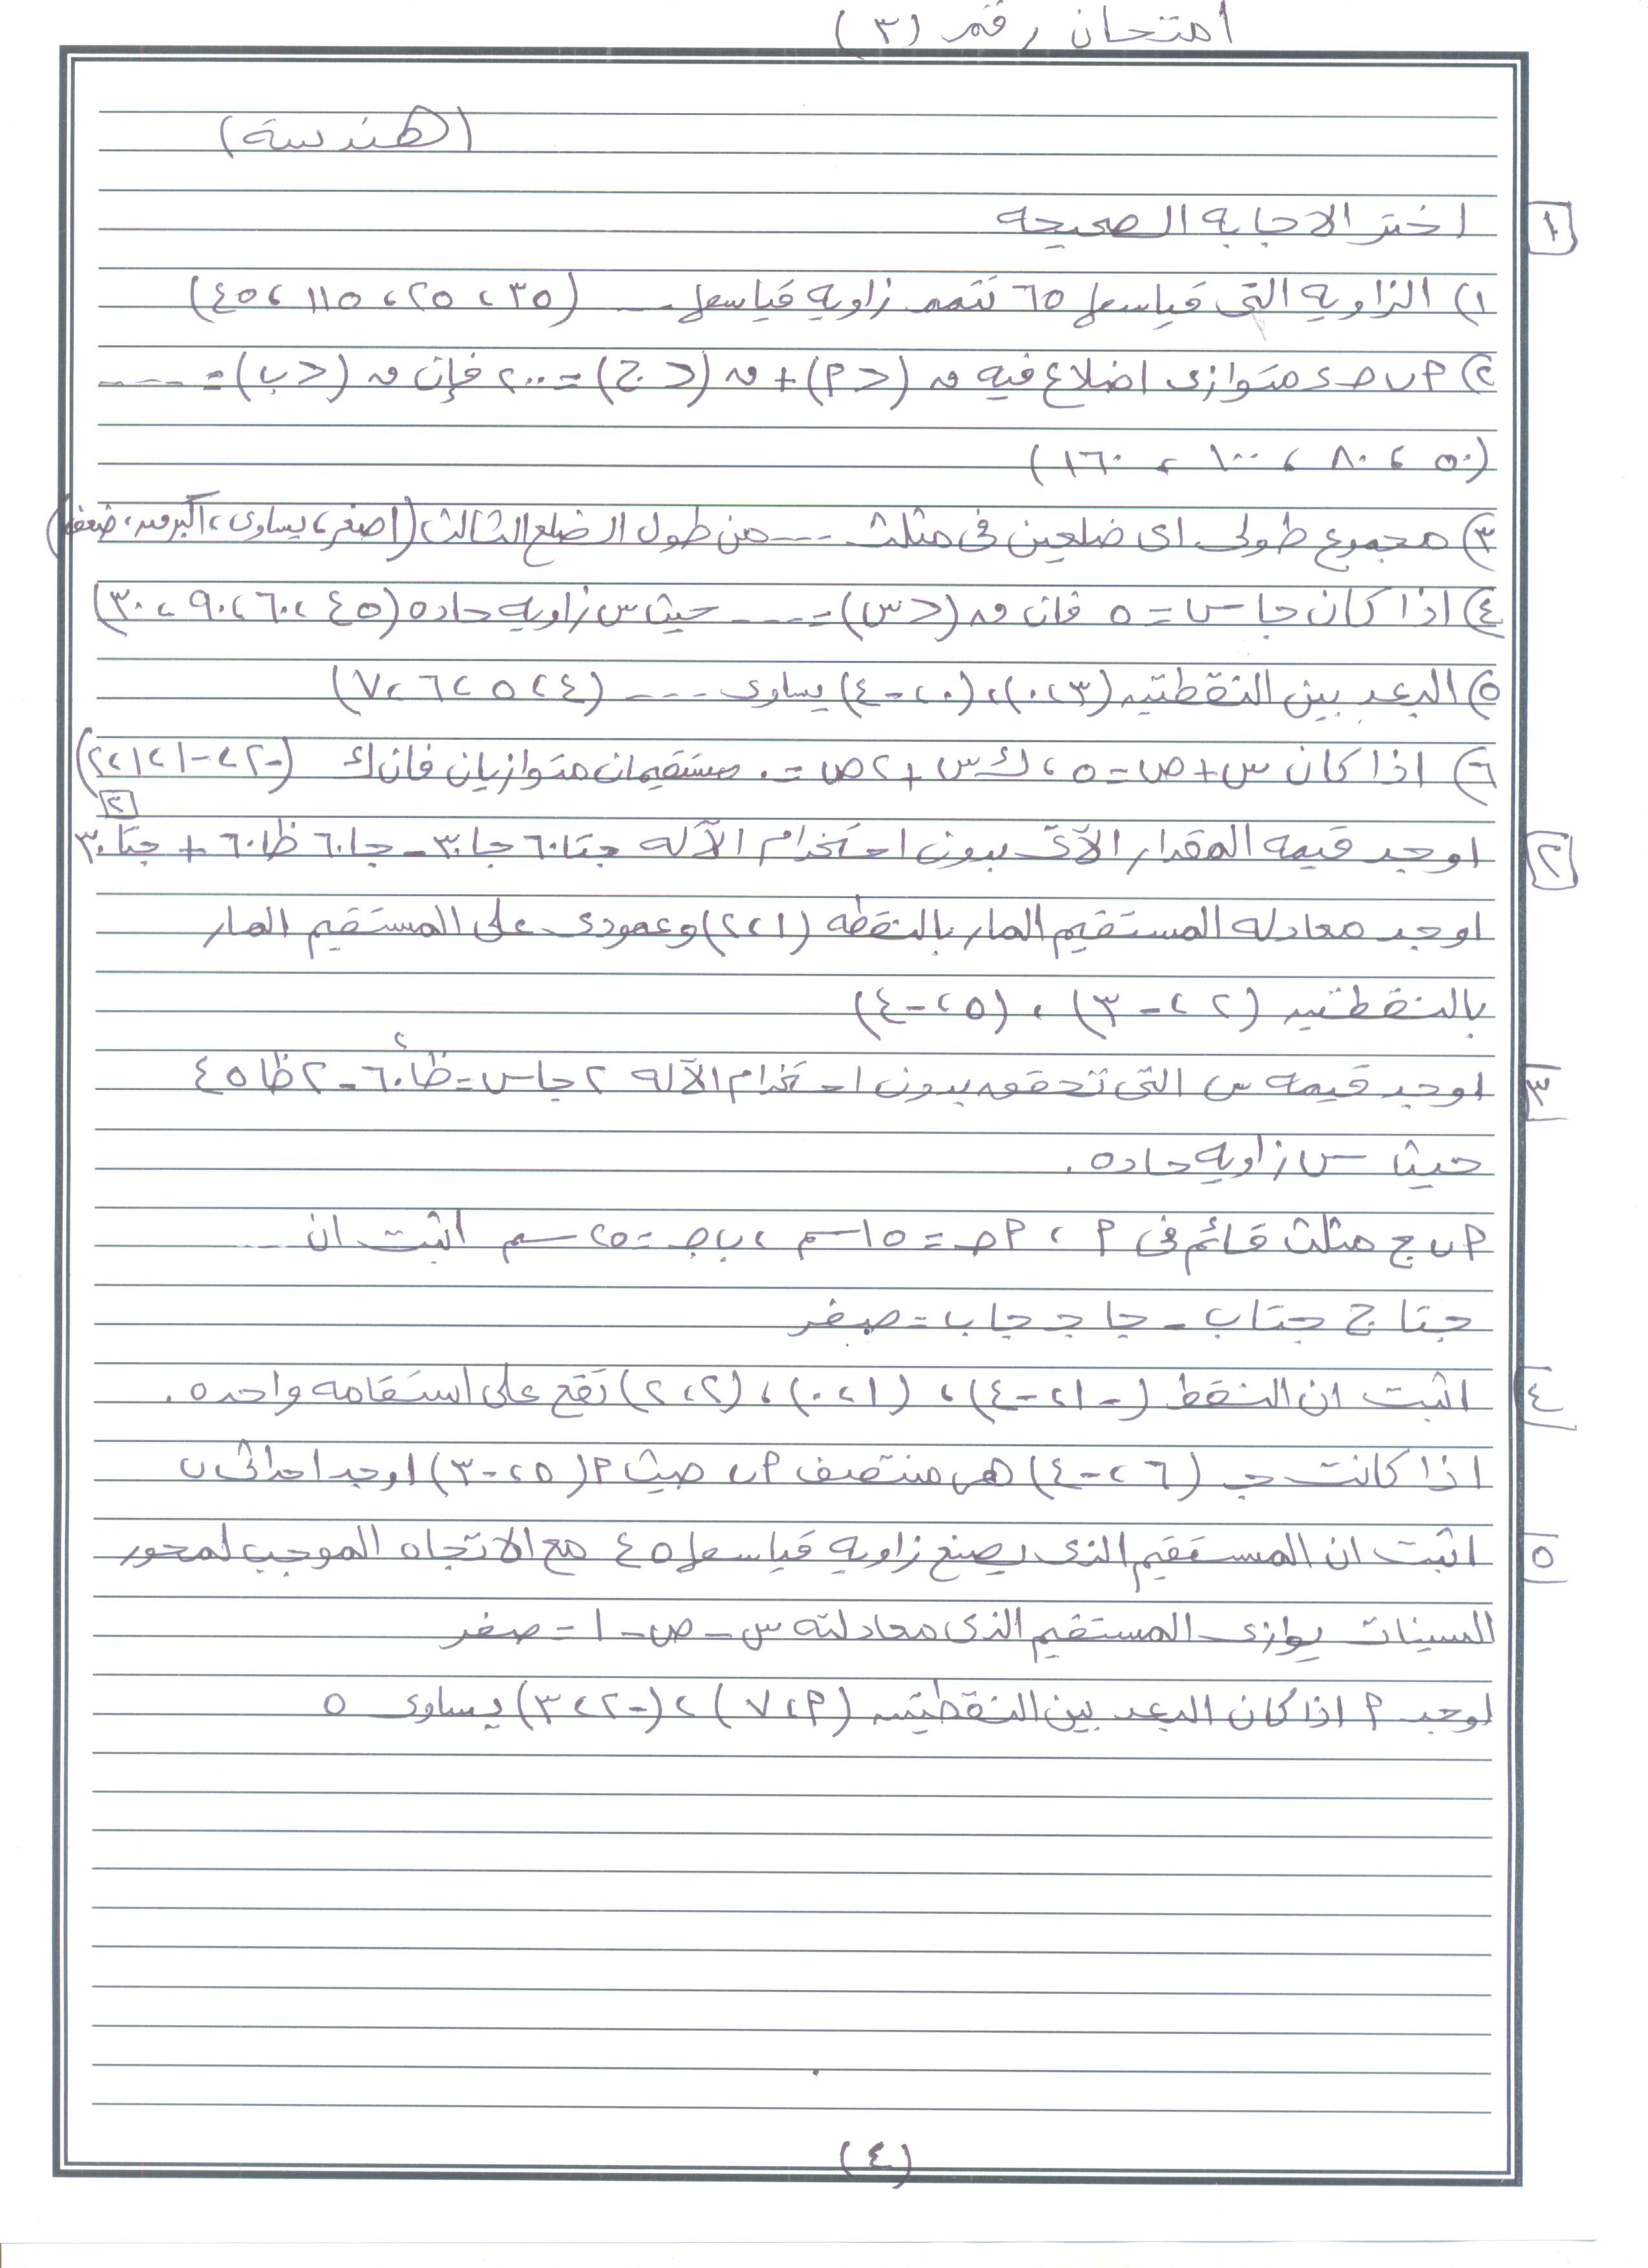 امتحان رقم (٣)
(هندسة)
١ اختر الاجابه الصحيحه
١) الزاويه التى قياسها ٦٥ تتمم زاويه قياسها --- (٣٥ ، ٢٥ ، ١١٥ ، ٤٥)
٢) ٩ ب ح ء متوازى اضلاع فيه ق (>٩) + ق (>ج) = ٢٠٠ فإن ق (>ب) = ----
(٥٠ ، ٨٠ ، ١٠٠ ، ١٦٠)
٣) مجموع طولى اى ضلعين فى مثلث --- من طول الضلع الثالث (اصغر، يساوى، اكبر من، ضعف)
٤) اذا كان جا س = ٥ فان ق (>س) = --- حيث س زاويه حاده (٤٥ ، ٦٠ ، ٩٠ ، ٣٠)
٥) البعد بين النقطتين (٣ ، ٠) ، (٠ ، -٤) يساوى --- (٤ ، ٥ ، ٦ ، ٧)
٦) اذا كان س + ص = ٥ ، ك س + ٢ ص = ٠ مستقيمان متوازيان فان ك (-٢ ، -١ ، ١ ، ٢)
٢ اوجد قيمه المقدار الآتى بدون استخدام الآله جتا ٦٠ جا ٣٠ - جا ٦٠ ظا ٦٠ + جتا٢ ٣٠
اوجد معادله المستقيم المار بالنقطه (١ ، ٢) وعمودى على المستقيم المار
بالنقطتين (٢ ، -٣) ، (٥ ، -٤)
٣ اوجد قيمه س التى تحقق بدون استخدام الآله ٢ جا س = ظا٢ ٦٠ - ٢ ظا ٤٥
حيث س زاويه حاده .
٩ ب ج مثلث قائم فى ٩ ، ٩ ج = ١٥ سم ، ب ج = ٢٥ سم اثبت ان ---
جتا ج جتا ب - جا ج جا ب = صفر
٤ اثبت ان النقط (-١ ، -٤) ، (١ ، ٠) ، (٢ ، ٢) تقع على استقامه واحده .
اذا كانت ج (٦ ، -٤) هى منتصف ٩ ب حيث ٩ (٥ ، -٣) اوجد احداثى ب
٥ اثبت ان المستقيم الذى يصنع زاويه قياسها ٤٥ مع الاتجاه الموجب لمحور
السينات يوازى المستقيم الذى معادلته س - ص - ١ = صفر
اوجد ٩ اذا كان البعد بين النقطتين (٩ ، ٧) ، (-٢ ، ٣) يساوى ٥
(٤)